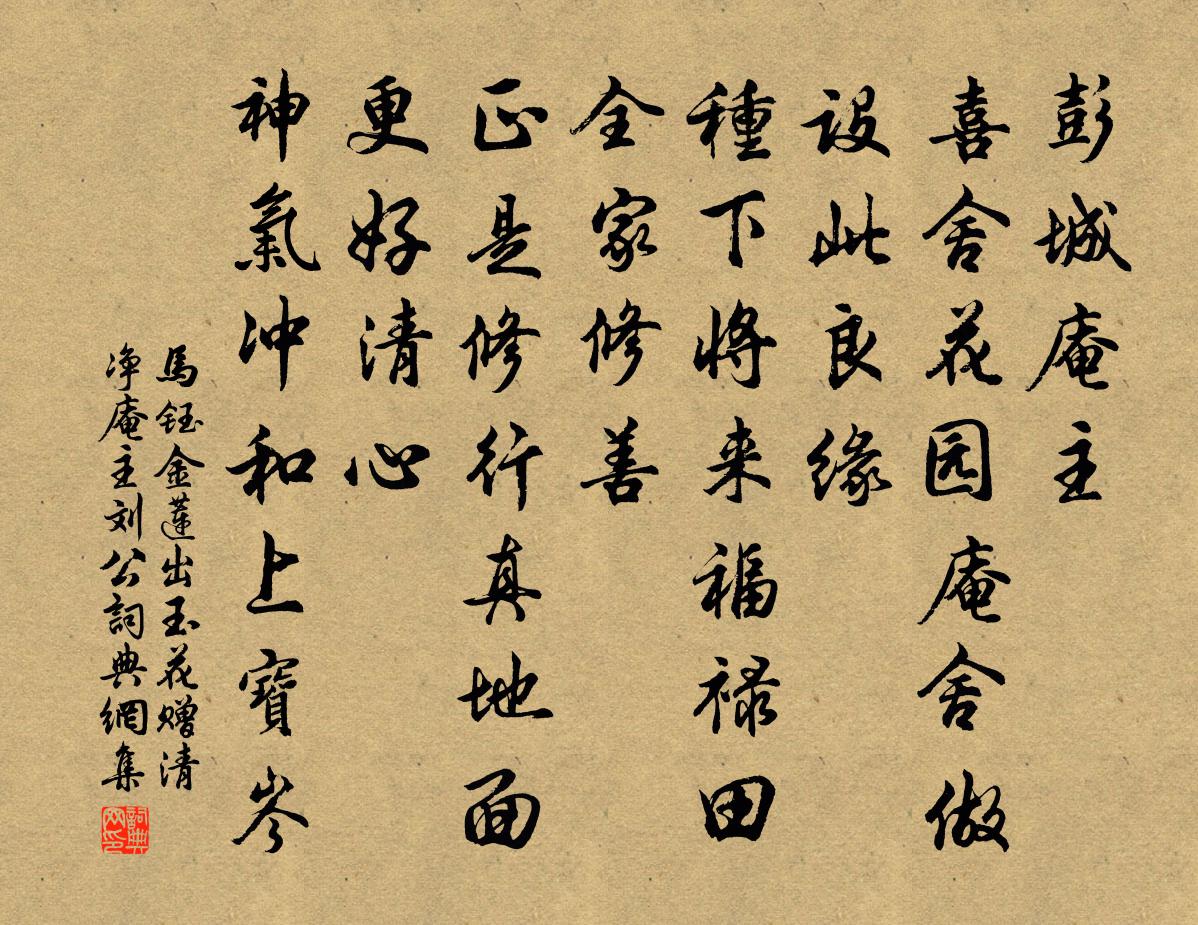 彭城庵主
喜舍花园庵舍做
設此良緣
種下將来福禄田
全家修善
正是修行真地面
更好清心
神氣冲和上寶岑
馬鈺金蓮出玉花贈清
净庵主刘公詞典網集
詞典网印